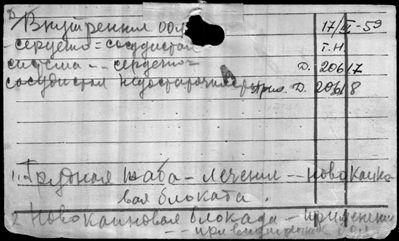 Внутренния 17/II-59
-сердечно-сосудистая т.н.
система -- сердечно- Д. 20617
сосудистая недостаточность прил. Д. 20618
1. Грудная жаба - лечение - новокаино-
вая блокада.
2. Новокаиновая блокада - применение
-- при внутренних